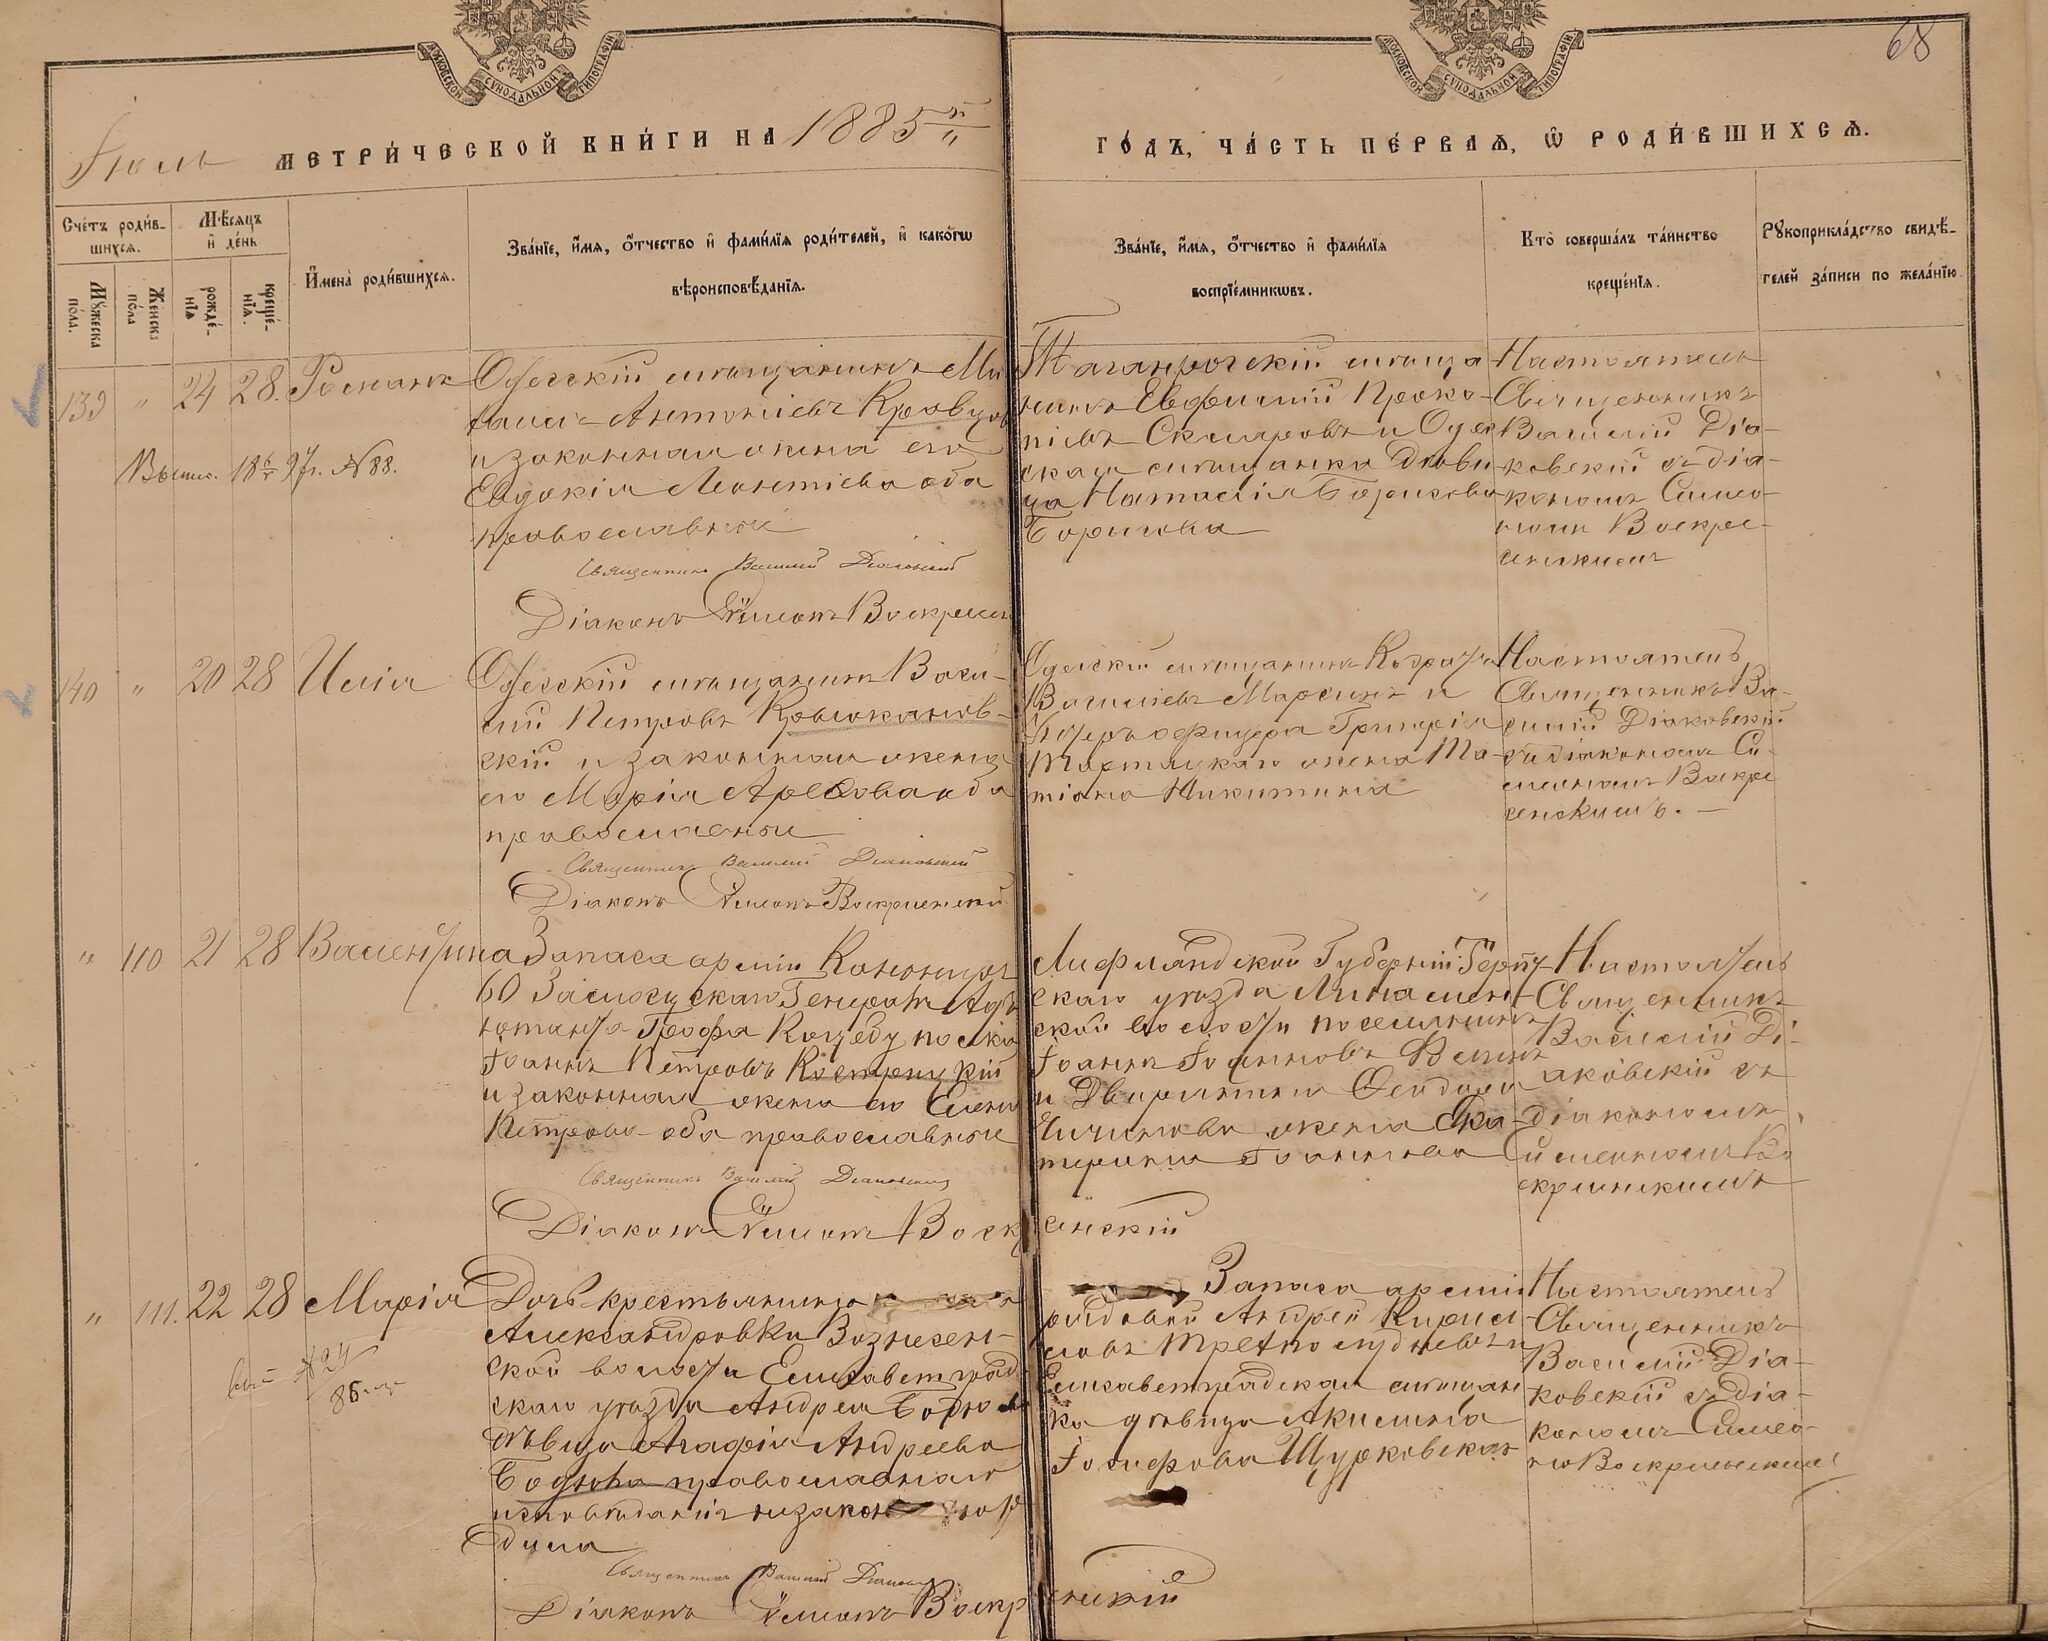 68
МОСКОВСКОЙ СУНОДАЛЬНОЙ ТИПОГРАФІИ
МОСКОВСКОЙ СУНОДАЛЬНОЙ ТИПОГРАФІИ
Іюль МЕТРИ́ЧЕСКОЙ КНИ́ГИ НА 1885й
ГО́ДЪ, ЧА́СТЬ ПЕ́РВАЯ, Ѿ РОДИ́ВШИХСЯ.
Сче́тъ роди́в-
шихся.
Мѣ́сяцъ
и҆ де́нь
Мꙋ́жеска по́ла.
Же́нска по́ла
рожде́-нїя
креще́-нїя.
И҆мена̀ роди́вшихся.
Зва́нїе, и҆́мя, о҆́тчество и҆ фами́лїя роди́телей, и҆ како́гѡ
вѣроисповѣ́данїя.
Зва́нїе, и҆́мя, о҆́тчество и҆ фами́лїя
воспрїе́мникѡвъ.
Кто̀ соверша́лъ та́инство
креще́нїя.
Рꙋкоприкла́дство свидѣ́-
телей за́писи по жела́нїю
139 " 24 28. Романъ
Выпис. 18 6/V 97г. № 88.
Одесскій мѣщанинъ Ми
хаилъ Антоніевъ Кравцов
и законная жена его
Евдокія Леонтіева оба
православные
Священникъ Василій Діаковскій
Діаконъ Симеонъ Воскресен
Таганрогскій мѣща
нинъ Евфимій Проко-
піевъ Скляровъ и Одес
ская мѣщанка дѣви
ца Наталія Борисова
Борисова
Настоятель
Священникъ
Василій Діа-
ковскій съ діа-
кономъ Симео-
номъ Воскре-
сенскимъ
140 " 20 28 Илія
Одесскій мѣщанинъ Васи-
лій Петровъ Крыжановъ-
скій и законная жена
его Марія Арефова оба
православные
Священникъ Василій Діаковскій
Діаконъ Симеонъ Воскресенскій
Одесскій мѣщанинъ Кодратъ
Василіевъ Марсинъ и
Унтеръ офицера Григорія
жена Та-
тіана Никитина
Настоятель
Священникъ Ва-
силій Діаковскій
съ діакономъ Си-
меономъ Воскре
сенскимъ. —
" 110 21 28 Валентина
Запаса арміи Канониръ
60 Замосцскаго Генералъ Адъ
ютанта Графа Коцебу полка
Іоаннъ Петровъ Кострицкій
и законная жена его Елена
Петрова оба православные
Священникъ Василій Діаковскій
Діаконъ Симеонъ Воскресенскій
Лифляндской Губерніи
скаго уѣзда
ской волости поселянинъ
Іоаннъ Іоанновъ
и Дворянина Феодора
жена Ека-
терина Іоаннова
Настоятель
Священникъ
Василій Ді-
аковскій съ
діакономъ
Симеономъ Во
скресенскимъ
" 111. 22 28 Марія
№ 24
86 года
Дочь крестьянина
Александровки Вознесен-
ской волости Елисаветград
скаго уѣзда Андрея Бодю
дѣвица Агафія Андреева
Бодюha православнаго
исповѣданія незакон но ро
дила
Священникъ Василій Діаковскій
Діаконъ Симеонъ Воскресенскій
Запаса арміи
рядовой Андрей Кирил
ловъ и
Елисаветградская мѣщан
ка дѣвица Акилина
Іосифова Щурковская
Настоятель
Священникъ
Василій Діа-
ковскій съ Діа-
кономъ Симео-
но Воскресенскимъ